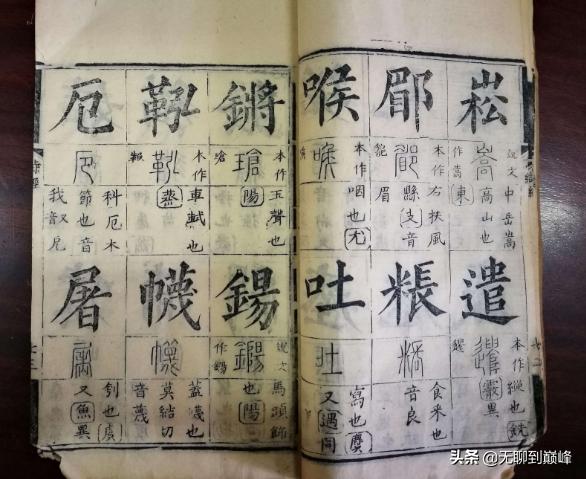 崧
中岳嵩
高山也
東
遣
本作縱也
銑
異
郿
本作右扶風
縣支音
眉
粻
食米也
音良
喉
本作咽也
尤
吐
寫也麌
又遇同
鏘
本作玉聲也
陽
瑲
鍚
說文馬頭飾
也陽
鞃
本作車軾也
蒸
幭
蓋幭也
莫結切
音蔑
厄
科厄木
節也音
屠
刳也虞
又魚異
头条 @无聊到巅峰